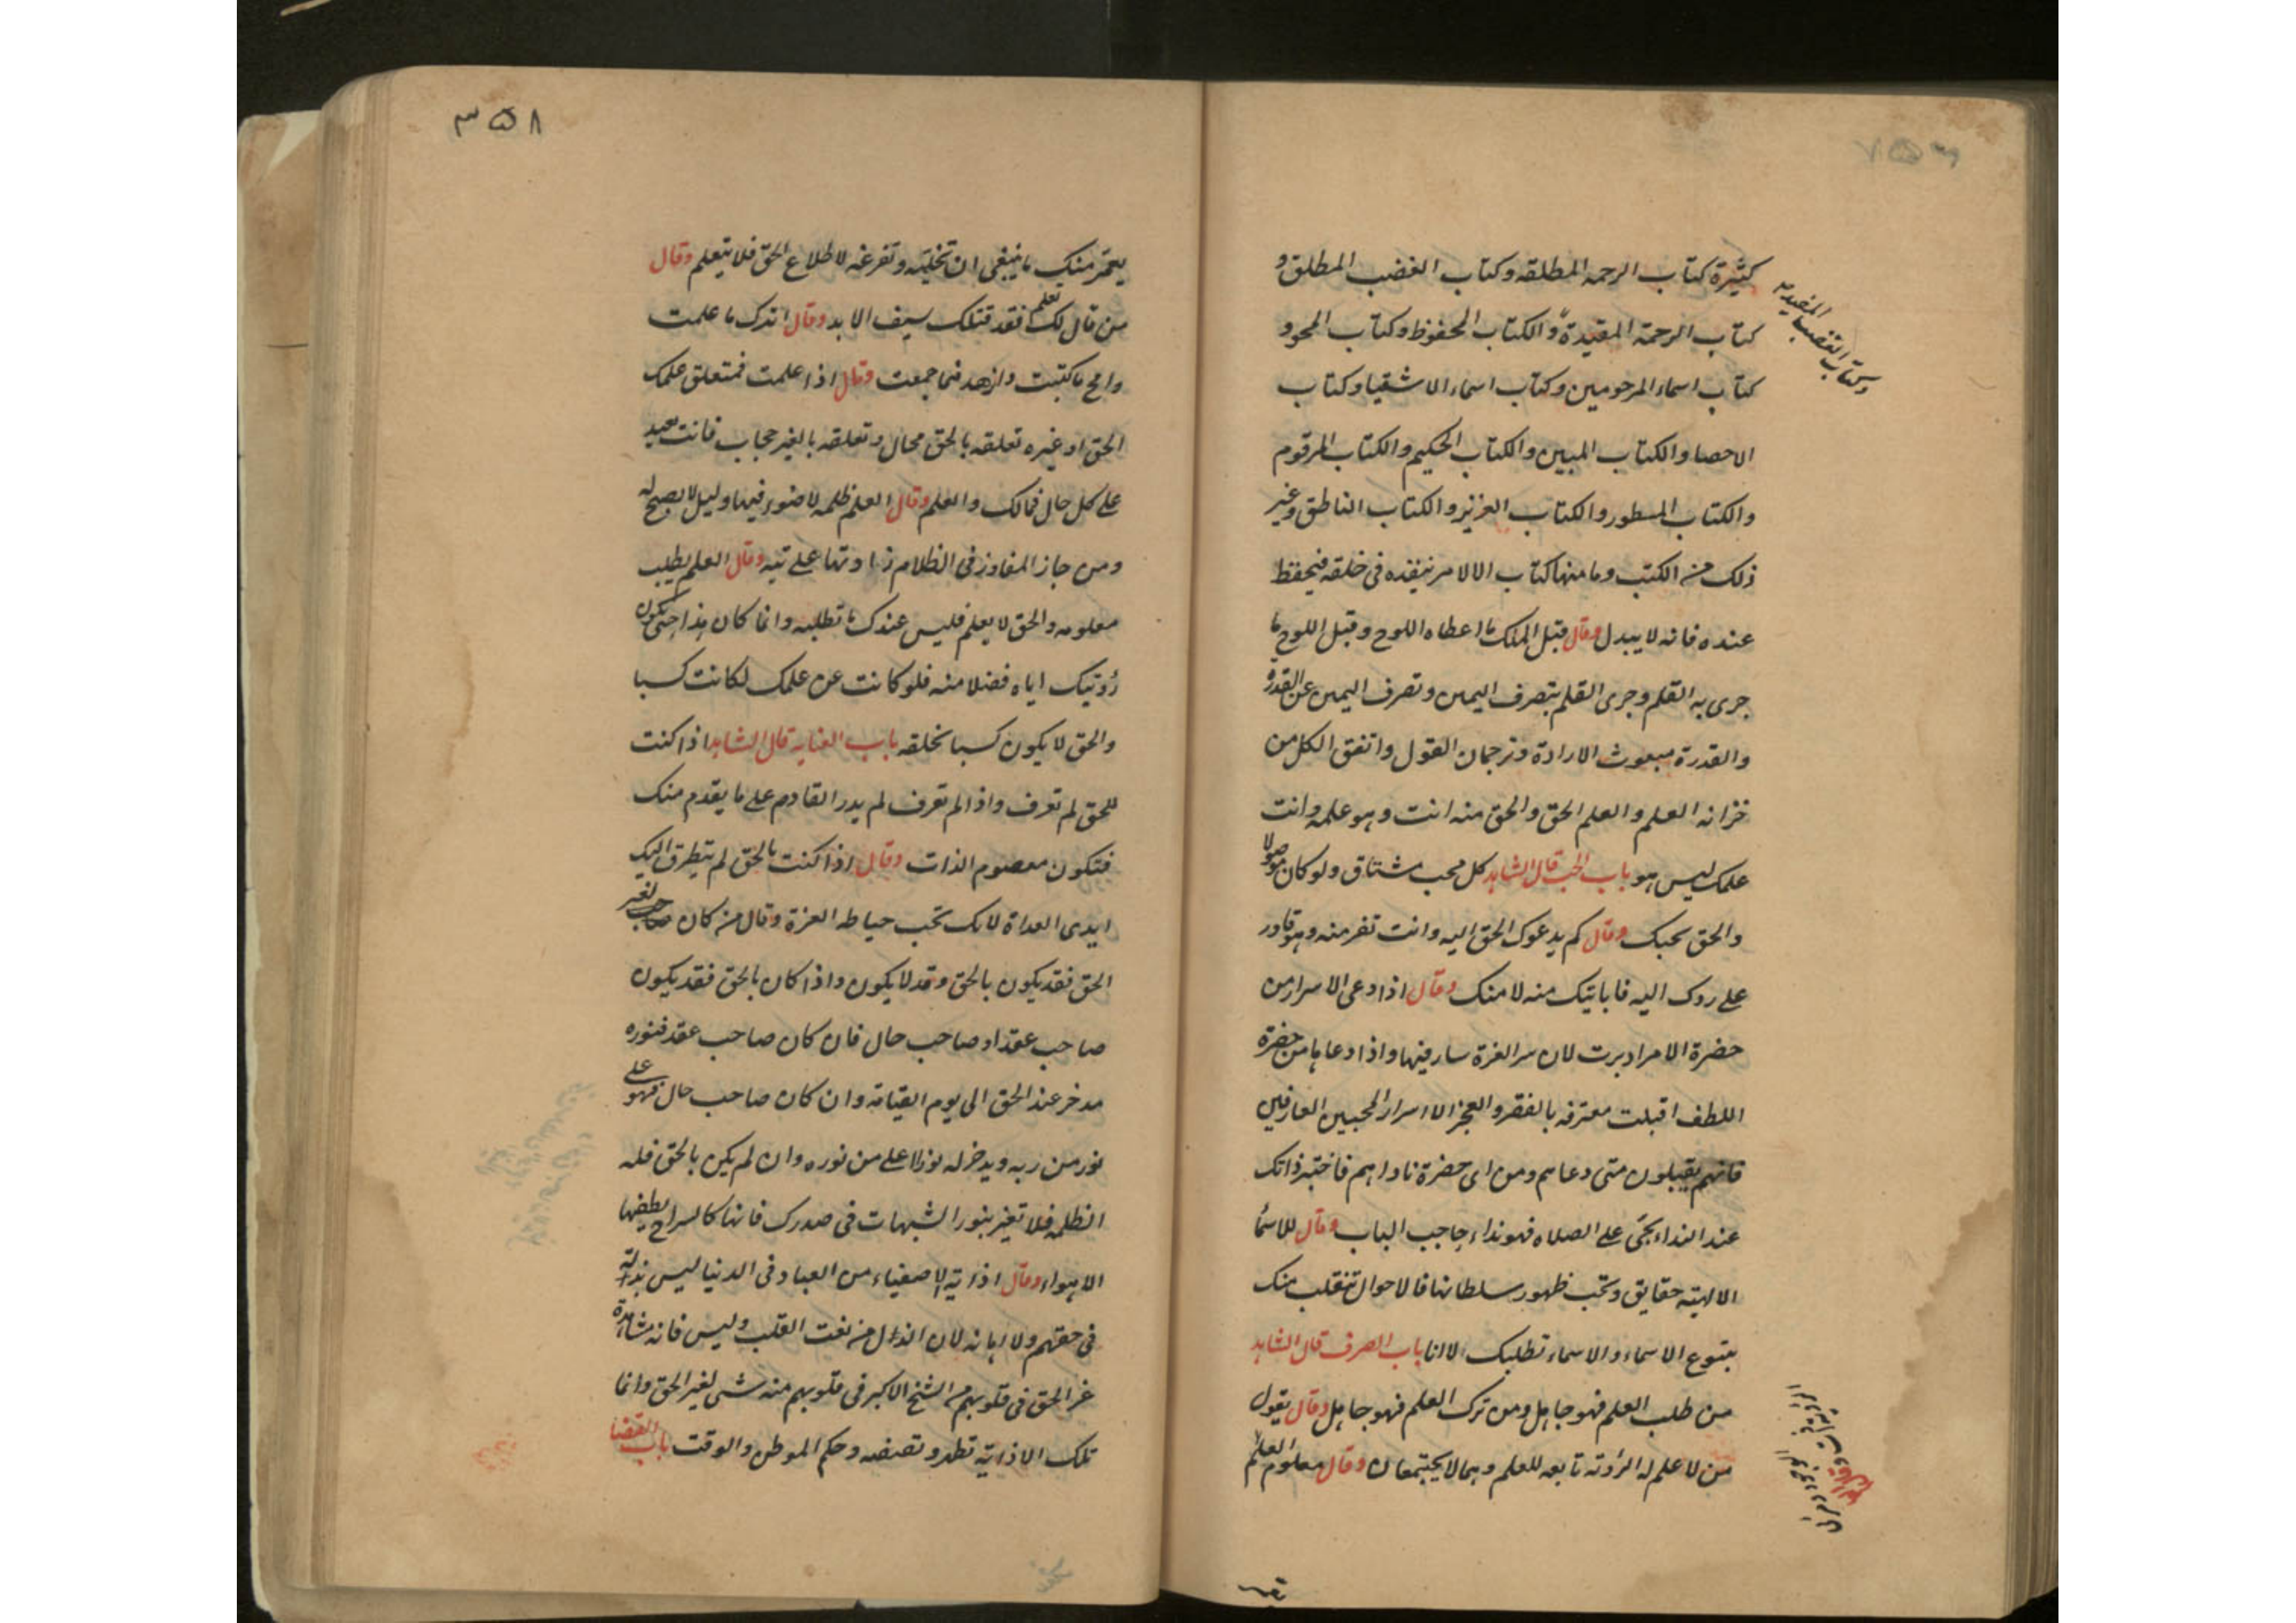 كثيرة كتاب الرحمه المطلقه وكتاب الغضب المطلق و
كتاب الرحمة المقيدة والكتاب المحفوظ وكتاب المحو و
وكتاب الغضب المقيد
كتاب اسماء المرحومين وكتاب اسماء الاشقيا وكتاب
الاحصا والكتاب المبين والكتاب الحكيم والكتاب المرقوم
والكتاب المسطور والكتاب العزيز والكتاب الناطق وغير
ذلك من الكتب وما منها كتاب الا لامر ينفذه فى خلقه فيحفظ
عنده فانه لا يبدل وقال قبل الملك ما اعطاه اللوح وقبل اللوح ما
جرى به القلم وجرى القلم بتصرف اليمين وتصرف اليمين عن القدرة
والقدرة مبعوث الارادة وترجمان القول واتفق الكل من
خزانه العلم والعلم الحق والحق منه انت وهو علمه وانت
علمك ليس هو باب الحب قال الشاهد كل محب مشتاق ولو كان موصولا
والحق يحبك وقال كم يدعوك الحق اليه وانت تفر منه وهو قادر
على ردك اليه فاباتيك منه لا منك وقال اذا دعى الاسرار من
حضرة الامر ادبرت لان سر العزة سار فيها واذا دعاها من حضرة
اللطف اقبلت معترفه بالفقر والعجز الا اسرار المحبين العارفين
فانهم يقبلون متى دعاهم ومن اى حضرة ناداهم فاختبر ذاتك
عند النداء بحى على الصلاه فهو نداء حاجب الباب وقال للاسما
الالهيه حقايق وتحب ظهور سلطانها فالاحوال تتقلب منك
بتنوع الاسماء والاسماء تطلبك لا انا باب الصرف قال الشاهد
من طلب العلم فهو جاهل ومن ترك العلم فهو جاهل وقال يقول
من لا علم له الرؤته تابعه للعلم وهما لا يجتمعان وقال معلوم العلم
٣٥٨
يعمر منك ما ينبغى ان تخليه وتفرغه لاطلاع الحق فلا يتعلم وقال
من قال لك تعلم فقد قتلك سيف الابد وقال اترك ما علمت
وامح ما كتبت وازهد فيما جمعت وقال اذا علمت فمتعلق علمك
الحق او غيره تعلقه بالحق محال وتعلقه بالغير حجاب فانت بعيد
على كل حال فمالك والعلم وقال العلم ظلمه لا ضوء فيها وليل لا يصبح له
ومن جاز المفاوز فى الظلام زا وتها على تيه وقال العلم يطلب
معلومه والحق لا يعلم فليس عندك ما تطلبه وانما كان هذا حتى يكون
رؤيتك اياه فضلا منه فلو كانت عن علمك لكانت كسبا
والحق لا يكون كسبا لخلقه باب العنايه قال الشاهد اذا كنت
للحق لم تعرف واذا لم تعرف لم يدر القادم على ما يقدم منك
فتكون معصوم الذات وقال اذا كنت بالحق لم يتطرق اليك
ايدى العداة لانك تحب حياطه العزة وقال من كان صاحب لغير
الحق فقد يكون بالحق وقد لا يكون واذا كان بالحق فقد يكون
صاحب عقد او صاحب حال فان كان صاحب عقد فنوره
مدخر عند الحق الى يوم القيامة وان كان صاحب حال فهو على
نور من ربه ويدخر له نورا اعلى من نوره وان لم يكن بالحق فله
الظلمه فلا تغير بنور الشبهات فى صدرك فانها كالسراج يطفيها
الاهواء وقال اذاية الاصفياء من العباد فى الدنيا ليس بذلة
فى حقهم ولا اهانه لان الذل من نعت القلب وليس فانه مشاهدة
عز الحق فى قلوبهم الشيخ الاكبر فى قلوبهم منه شى لغير الحق وانما
تلك الاذاية وحكم الموطن والوقت باب القضا